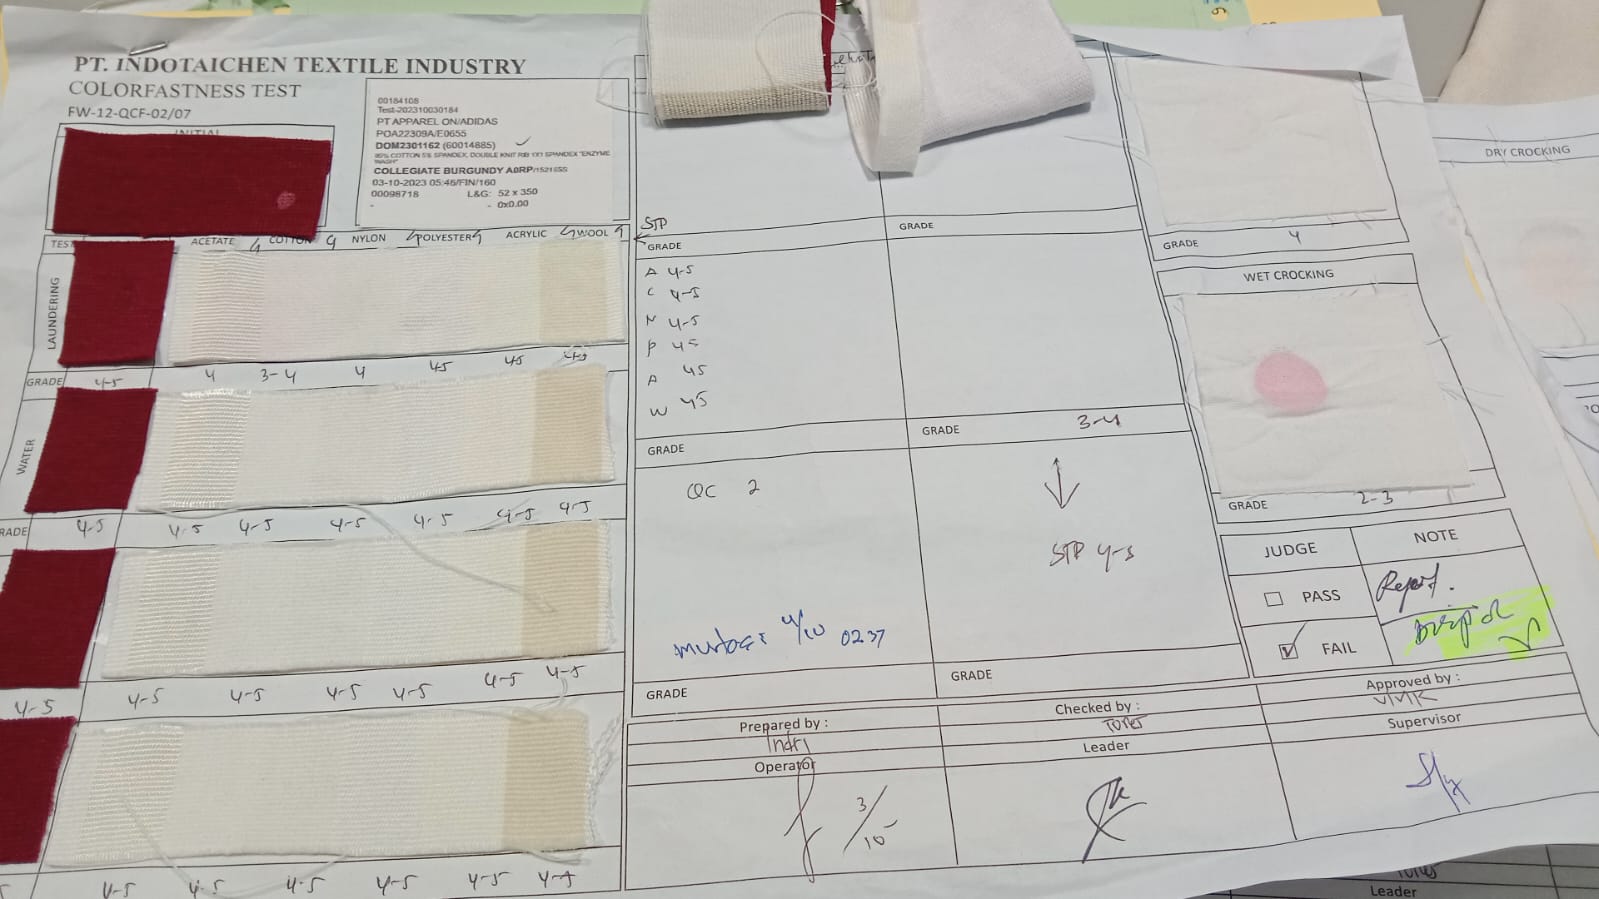 PT. INDOTAICHEN TEXTILE INDUSTRY
COLORFASTNESS TEST
FW-12-QCF-02/07
INITIAL
00184108
Test-202310030184
PT APPAREL ON/ADIDAS
POA22309A/E0655
DOM2301162 (60014885)
95% COTTON 5% SPANDEX, DOUBLE KNIT RIB 1X1 SPANDEX "ENZYME
WASH"
COLLEGIATE BURGUNDY A0RP/152165S
03-10-2023 05:46/FIN/160
00098718 L&G: 52 x 350
- - 0x0.00
TEST ACETATE COTTON NYLON POLYESTER ACRYLIC WOOL
LAUNDERING
GRADE 4-5 4 3-4 4 45 45 45
WATER
RADE 4-5 4-5 4-5 4-5 4-5 4-5 4-5
4-5 4-5 4-5 4-5 4-5 4-5 4-5
4-5 4-5 4-5 4-5 4-5 4-5
STP
GRADE
A 4-5
C 4-5
N 4-5
P 45
A 45
W 45
GRADE
GRADE
QC 2
4/10 0237
GRADE
GRADE 3-4
STP 4-5
GRADE
GRADE 4
WET CROCKING
GRADE 2-3
JUDGE NOTE
PASS Report.
FAIL
Prepared by :
Indri
Operator
3/10
Checked by :
Leader
Approved by :
Supervisor
DRY CROCKING
Leader